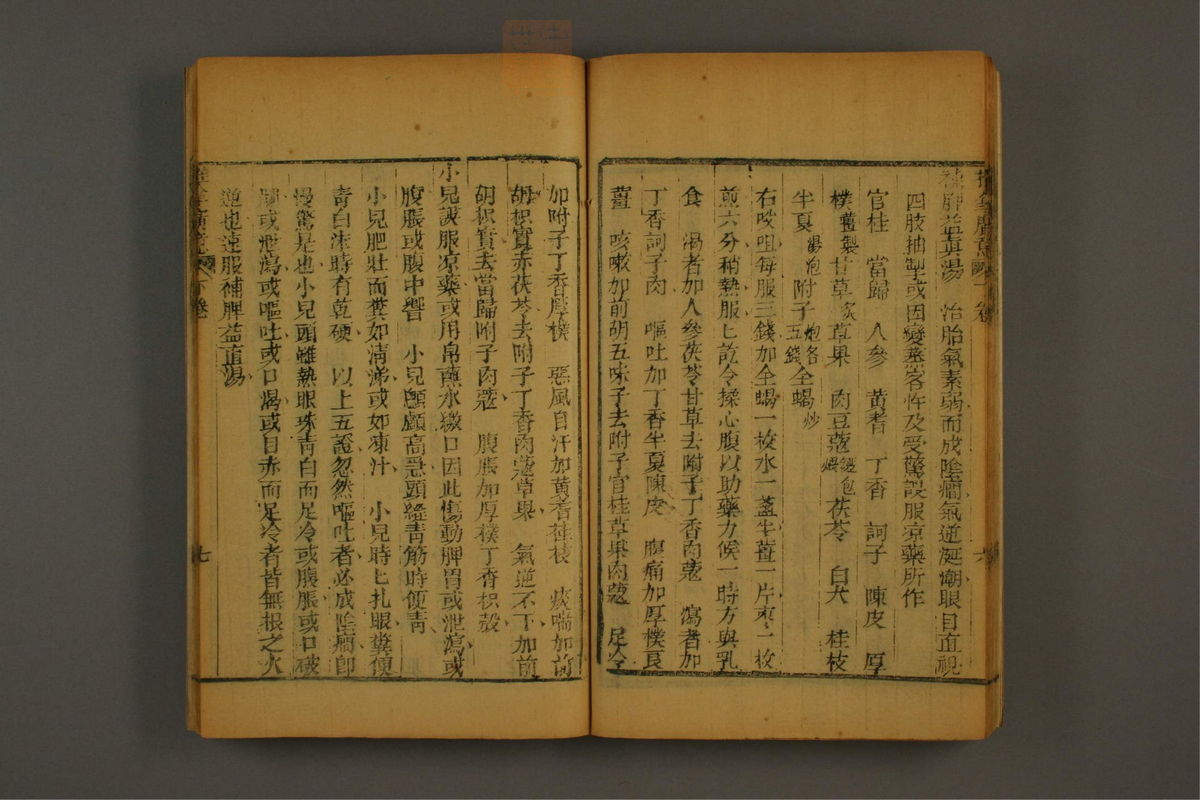 補脾益真湯　治胎氣素弱而成陰癎氣逆涎潮眼目直視
四肢抽掣或因變蒸客忤及受驚誤服凉藥所作
官桂　當歸　人參　黃耆　丁香　訶子　陳皮　厚
樸薑製甘草炙草果　肉豆蔻麵包煨　茯苓　白朮　桂枝
半夏湯泡附子炮各五錢全蝎炒
右㕮咀每服三錢加全蝎一枚水一盞半薑一片枣一枚
煎六分稍熱服匕訖令揉心腹以助藥力候一時方與乳
食　渴者加人參茯苓甘草去附子丁香肉蔻　瀉者加
丁香訶子肉　嘔吐加丁香半夏陳皮　腹痛加厚樸良
薑　咳嗽加前胡五味子去附子官桂草果肉蔻　足冷
加附子丁香厚樸　惡風自汗加黃耆桂枝　痰喘加前
胡枳實赤茯苓去附子丁香肉蔻草果　氣逆不下加前
胡枳實去當歸附子肉蔻　腹脹加厚樸丁香枳殻
小兒誤服凉藥或用帛蘸水繳口因此傷動脾胃或泄瀉或
腹脹或腹中響　小兒顖顱高急頭縫青筋時便青
小兒肥壯而糞如清涕或如凍汁　小兒時匕扎眼糞便
青白沫時有乾硬　以上五證忽然嘔吐者必成陰癎卽
慢驚是也小兒頭雖熱眼珠青白而足冷或腹脹或口破
或泄瀉或嘔吐或口渴或目赤而足冷者皆無根之火
逆也速服補脾益真湯
七